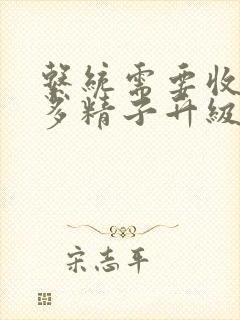 繫統需要收
多精子升級
宋志平